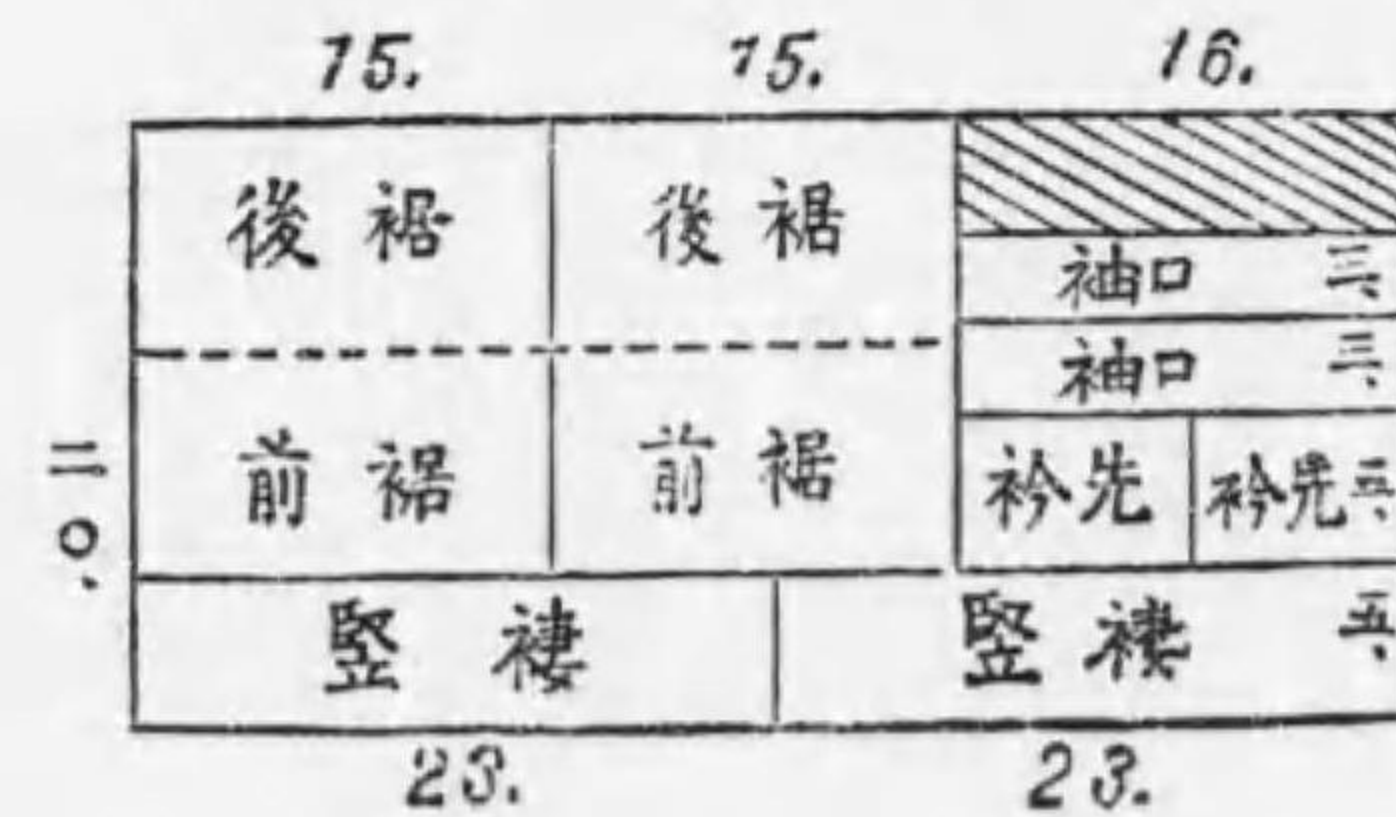 15. 15. 16.
後裾 後裾
袖口 三、
袖口 三、
二〇.
前裾 前裾 衿先 衿先 三、
竪褄 竪褄 五、
23. 23.